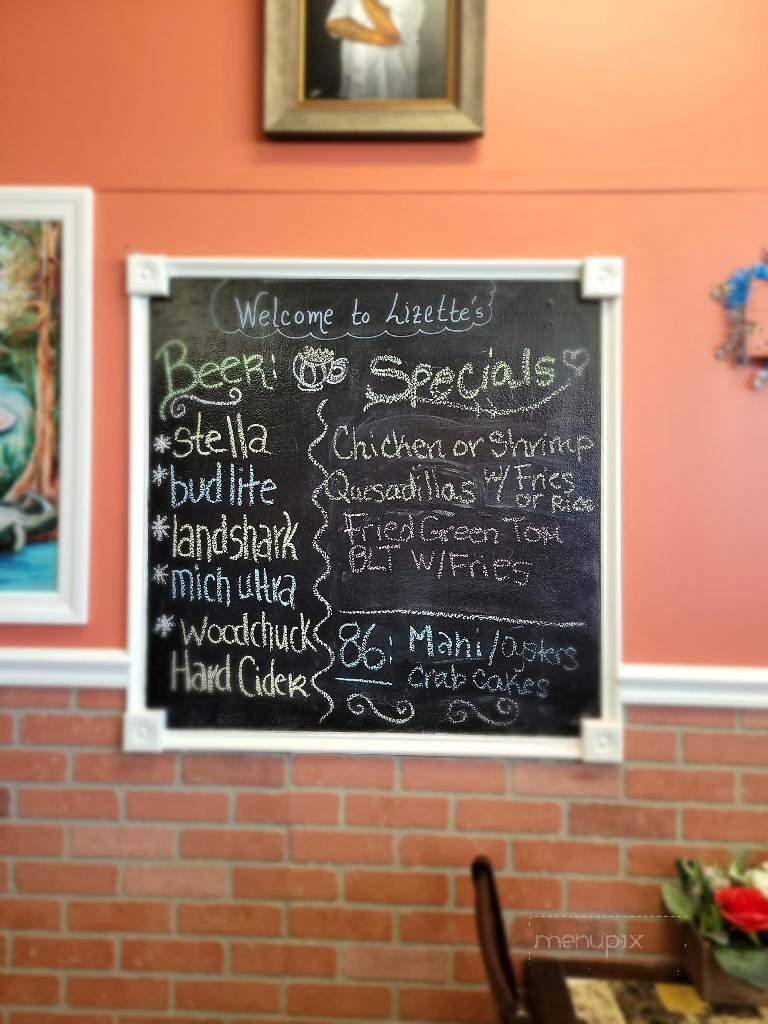 Welcome to Lizette's
Beer:
*stella
*bud lite
*landshark
*mich ultra
*Woodchuck
Hard Cider
Specials
Chicken or Shrimp
Quesadillas w/ Fries
or Rice
Fried Green Tom
BLT W/Fries
86: Mahi/oysters
crab cakes
menupix